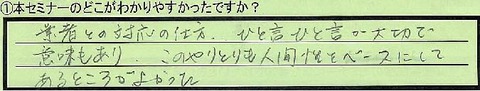 ①本セミナーのどこがわかりやすかったですか?
業者との対応の仕方、ひと言ひと言が大切で
意味もあり、このやりとりも人間性をベースにして
あるところがよかった